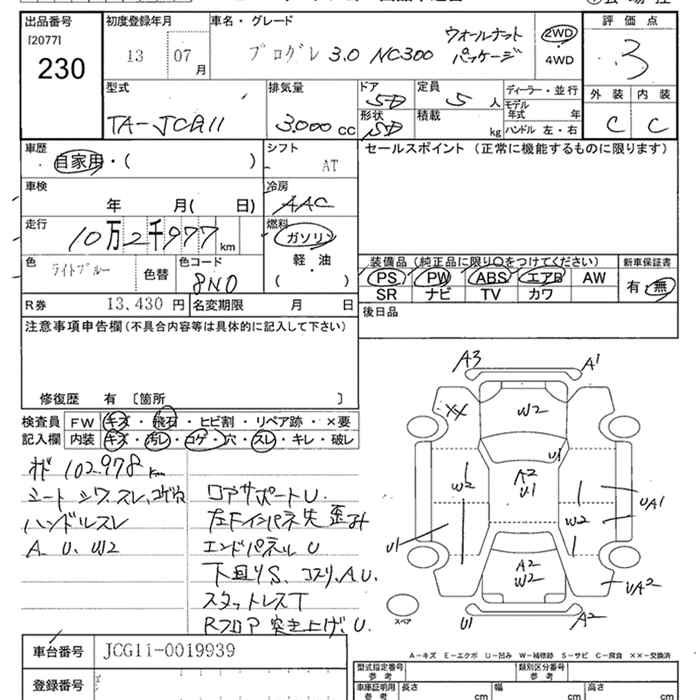 出品番号 初度登録年月 車名・グレード 評価点
[2077] 13 07 月 プログレ 3.0 NC300 ウォールナットパッケージ 2WD ・ 4WD 3
230
型式 排気量 ドア 定員 ディーラー・並行 外装 内装
TA-JCG11 3.000 cc 5D 5 人 モデル年式 年 C C
形状 積載 kg ハンドル 左・右
5D
車歴 シフト セールスポイント(正常に機能するものに限ります)
自家用・( ) AT
車検 冷房
年 月( 日) AAC
走行 燃料
10万2千977 km ガソリン
軽・油
( )
色 色コード 装備品(純正品に限り○をつけてください) 新車保証書
ライトブルー 色替 8N0 PS PW ABS エアB AW 有・無
SR ナビ TV カワ
R券 13,430 円 名変期限 月 日 後日品
注意事項申告欄(不具合内容等は具体的に記入して下さい)
修復歴 有 〔箇所 〕
検査員 FW キズ・飛石・ヒビ割・リペア跡・×要
記入欄 内装 キズ・汚レ・コゲ・穴・スレ・キレ・破レ
オド 102.978 km
シート シワ、スレ、コゲ穴
ハンドルスレ
A U、W2
コアサポートU.
左Fインパネ先 歪み
エンドパネル U
下回りS、コスリ、A.U.
スタットレスT
Rフロア 突き上げ、U
A3 A1
XX W2
U1
W2 A2 U1 W2 UA1
U1
A2 W2 UA2
スペア U1 A2
A-キズ E-エクボ U-凹み W-補修跡 S-サビ C-腐食 ××-交換済
車台番号 JCG11-0019939
登録番号
型式指定番号 参考 類別区分番号 参考
車庫証明用 参考 長さ cm 幅 cm 高さ cm